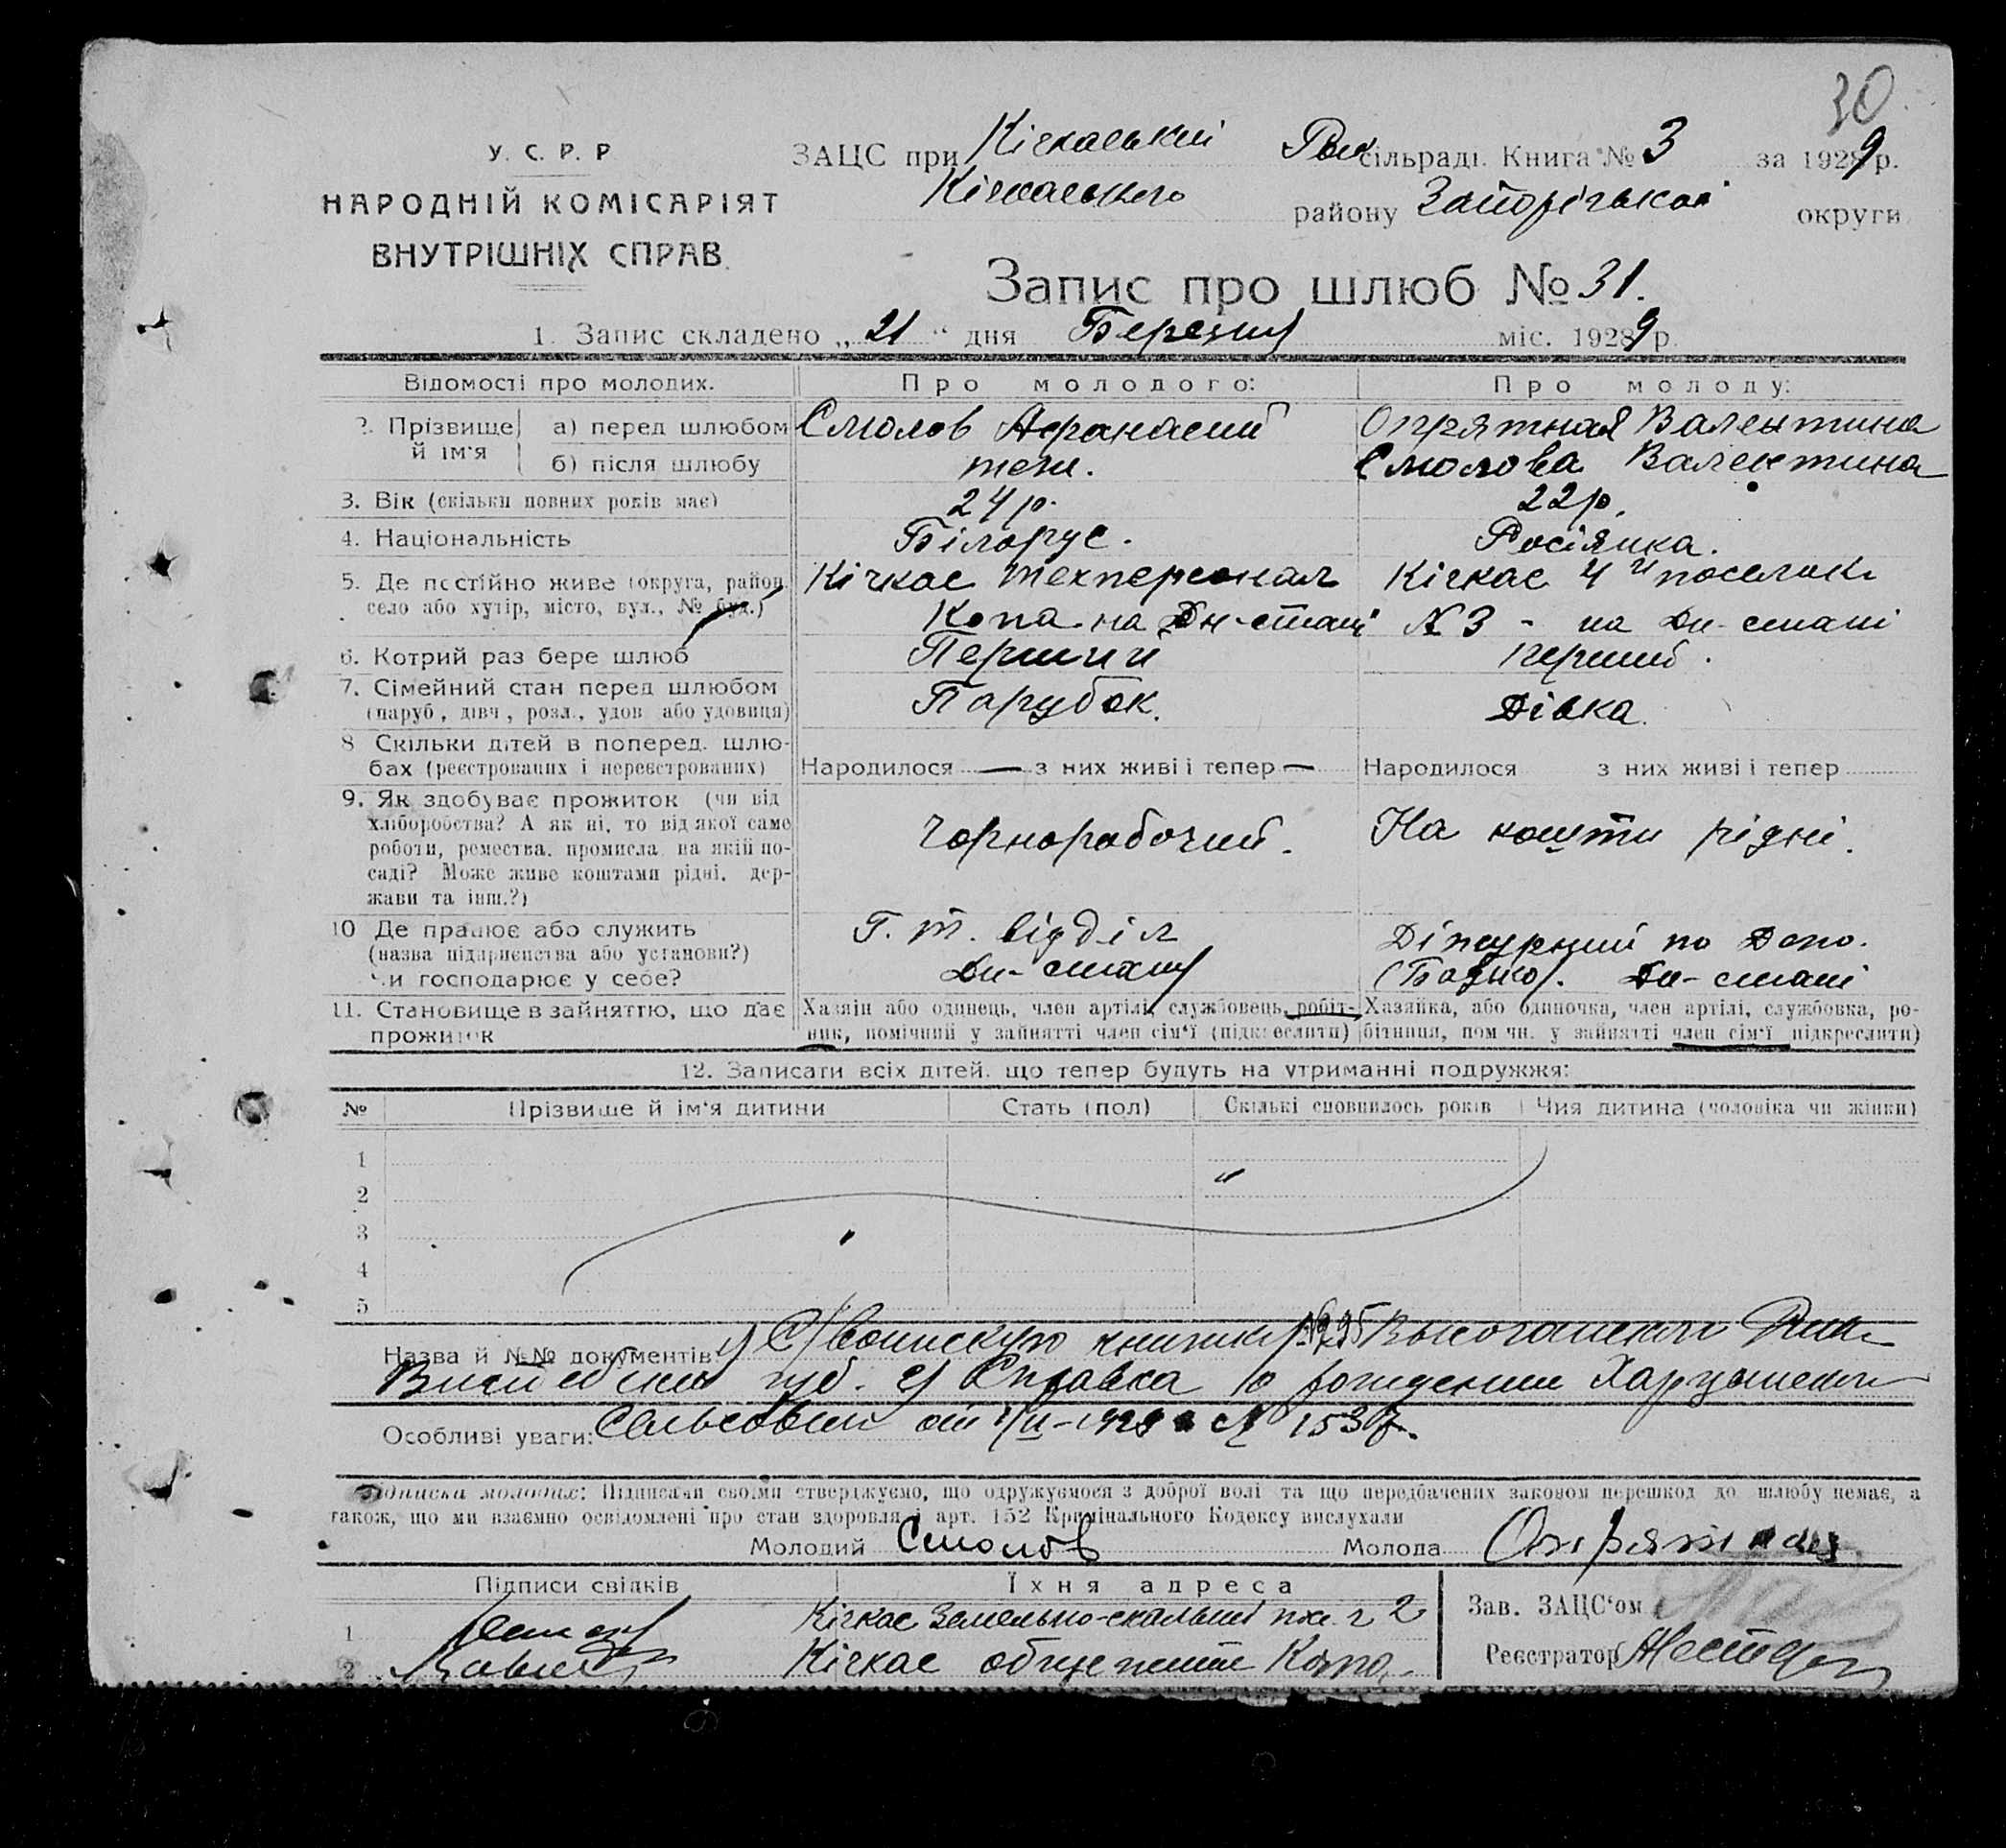 30
У. С. Р. Р
НАРОДНІЙ КОМІСАРІЯТ
ВНУТРІШНІХ СПРАВ.
ЗАЦС при Кічкаський Рик сільраді. Книга № 3 за 1929 р.
Кічкаського району Запорізької округи
Запис про шлюб № 31.
1. Запис складено „ 21 “ дня Березня міс. 1929 р.
Відомості про молодих. Про молодого: Про молоду:
2. Прізвище й ім'я а) перед шлюбом Смолов Афанасий Опрятная Валентина
б) після шлюбу теж. Смолова Валентина
3. Вік (скільки повних років має) 24 р. 22 р.
4. Національність Білорус. Росіянка.
5. Де постійно живе (округа, район, Кічкас техперсонал Кічкас 4й поселок
село або хутір, місто, вул., № буд.) Копа на Дн-стані № 3 - на Дн-стані
6. Котрий раз бере шлюб Перший перший.
7. Сімейний стан перед шлюбом Парубок. Дівка.
(паруб, дівч, розл., удов або удовиця)
8 Скільки дітей в поперед. шлю-
бах (реєстрованих і нереєстрованих) Народилося — з них живі і тепер — Народилося з них живі і тепер
9. Як здобуває прожиток (чи від
хліборобства? А як ні, то від якої саме
роботи, ремества, промисла на якій по- Чорнорабочий. На кошти рідні.
саді? Може живе коштами рідні, дер-
жави та інш.?)
10 Де працює або служить Г. т. відділ Діжурний по Депо.
(назва підприємства або установи?) Дн-стану (Батько). Дн-стані
Чи господарює у себе?
11. Становище в зайняттю, що дає Хазяїн або одинець, член артілі, службовець, робіт- Хазяйка, або одиночка, член артілі, службовка, ро-
прожиток ник, помічний у зайнятті член сім'ї (підкреслити) бітниця, пом чн. у зайнятті член сім'ї підкреслити)
12. Записати всіх дітей, що тепер будуть на утриманні подружжя:
№ Прізвище й ім'я дитини Стать (пол) Скількі сповнилось років Чия дитина (чоловіка чи жінки)
1
2
3
4
5
Назва й №№ документів: Воинскую книжку
губ. 2) Справка о рождении
Особливі уваги: № 1537.
Підписка молодих: Підписами своїми стверджуємо, що одружуємося з доброї волі та що передбачених законом перешкод до шлюбу немає, а
також, що ми взаємно освідомлені про стан здоровля і арт. 152 Кримінального Кодексу вислухали
Молодий Смолов Молода Опрятная
Підписи свідків Їхня адреса Зав. ЗАЦС'ом
1 Кічкас Земельно-скальний 2
2 Кічкас общежитие Копа. Реєстратор